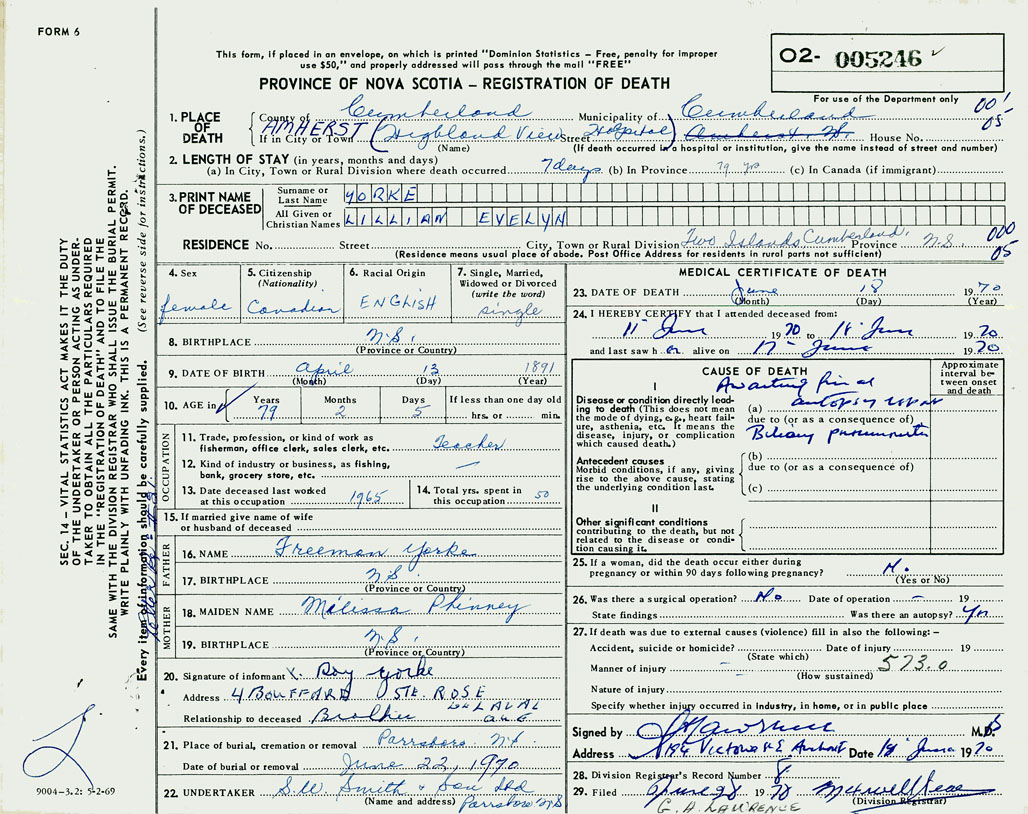 FORM 6
This form, if placed in an envelope, on which is printed "Dominion Statistics – Free, penalty for improper
use $50," and properly addressed will pass through the mail "FREE"
O2- 005246 ✓
PROVINCE OF NOVA SCOTIA – REGISTRATION OF DEATH
For use of the Department only 00' 05
1. PLACE OF DEATH
County of Cumberland Municipality of Cumberland
If in City or Town AMHERST (Highland View Street Hospital) Amherst, N.S. House No.
(Name) (If death occurred in a hospital or institution, give the name instead of street and number)
2. LENGTH OF STAY (in years, months and days)
(a) In City, Town or Rural Division where death occurred 7 days (b) In Province 79 yrs (c) In Canada (if immigrant)
3. PRINT NAME OF DECEASED
Surname or Last Name YORKE
All Given or Christian Names LILLIAN EVELYN
RESIDENCE No. Street City, Town or Rural Division Two Islands Cumberland, Province N.S. 000 05
(Residence means usual place of abode. Post Office Address for residents in rural parts not sufficient)
4. Sex female
5. Citizenship (Nationality) Canadian
6. Racial Origin ENGLISH
7. Single, Married, Widowed or Divorced (write the word) single
8. BIRTHPLACE N.S.
(Province or Country)
9. DATE OF BIRTH April 13 1891
(Month) (Day) (Year)
10. AGE in ✓ Years 79 Months 2 Days 5 If less than one day old hrs. or min.
OCCUPATION
11. Trade, profession, or kind of work as fisherman, office clerk, sales clerk, etc. Teacher
12. Kind of industry or business, as fishing, bank, grocery store, etc. —
13. Date deceased last worked at this occupation 1965
14. Total yrs. spent in this occupation 50
15. If married give name of wife or husband of deceased
FATHER
16. NAME Freeman Yorke
17. BIRTHPLACE N.S.
(Province or Country)
MOTHER
18. MAIDEN NAME Melissa Phinney
19. BIRTHPLACE N.S.
(Province or Country)
20. Signature of informant X Roy Yorke
Address 4 BOUFFARD STE. ROSE
DE LAVAL
Relationship to deceased Brother QUE
21. Place of burial, cremation or removal Parrsboro N.S.
Date of burial or removal June 22, 1970
22. UNDERTAKER S.W. Smith & Son Ltd
(Name and address) Parrsboro N.S
MEDICAL CERTIFICATE OF DEATH
23. DATE OF DEATH June 18 1970
(Month) (Day) (Year)
24. I HEREBY CERTIFY that I attended deceased from:
11 June 1970 to 18 June 1970
and last saw her alive on 17 June 1970
CAUSE OF DEATH
Approximate interval between onset and death
I Awaiting final
Disease or condition directly leading to death (This does not mean the mode of dying, e.g., heart failure, asthenia, etc. It means the disease, injury, or complication which caused death.)
(a) autopsy report
due to (or as a consequence of)
Biliary
Antecedent causes
Morbid conditions, if any, giving rise to the above cause, stating the underlying condition last.
(b)
due to (or as a consequence of)
(c)
II
Other significant conditions contributing to the death, but not related to the disease or condition causing it.
25. If a woman, did the death occur either during pregnancy or within 90 days following pregnancy? No
(Yes or No)
26. Was there a surgical operation? No Date of operation – 19
State findings Was there an autopsy? Yes
27. If death was due to external causes (violence) fill in also the following: –
Accident, suicide or homicide? Date of injury 19
(State which)
Manner of injury – 573.0
(How sustained)
Nature of injury
Specify whether injury occurred in industry, in home, or in public place
Signed by M.D.
Address Victoria St E. Amherst Date 18 June 1970
28. Division Registrar's Record Number 8
29. Filed June 28 1970
(Division Registrar)
G. A. LAWRENCE
SEC. 14 – VITAL STATISTICS ACT MAKES IT THE DUTY
OF THE UNDERTAKER OR PERSON ACTING AS UNDER-
TAKER TO OBTAIN ALL THE PARTICULARS REQUIRED
IN THE "REGISTRATION OF DEATH" AND TO FILE THE
SAME WITH THE DIVISION REGISTRAR WHO SHALL ISSUE THE BURIAL PERMIT.
WRITE PLAINLY WITH UNFADING INK. THIS IS A PERMANENT RECORD.
Every item of information should be carefully supplied. (See reverse side for instructions.)
9004-3.2: 5-2-69